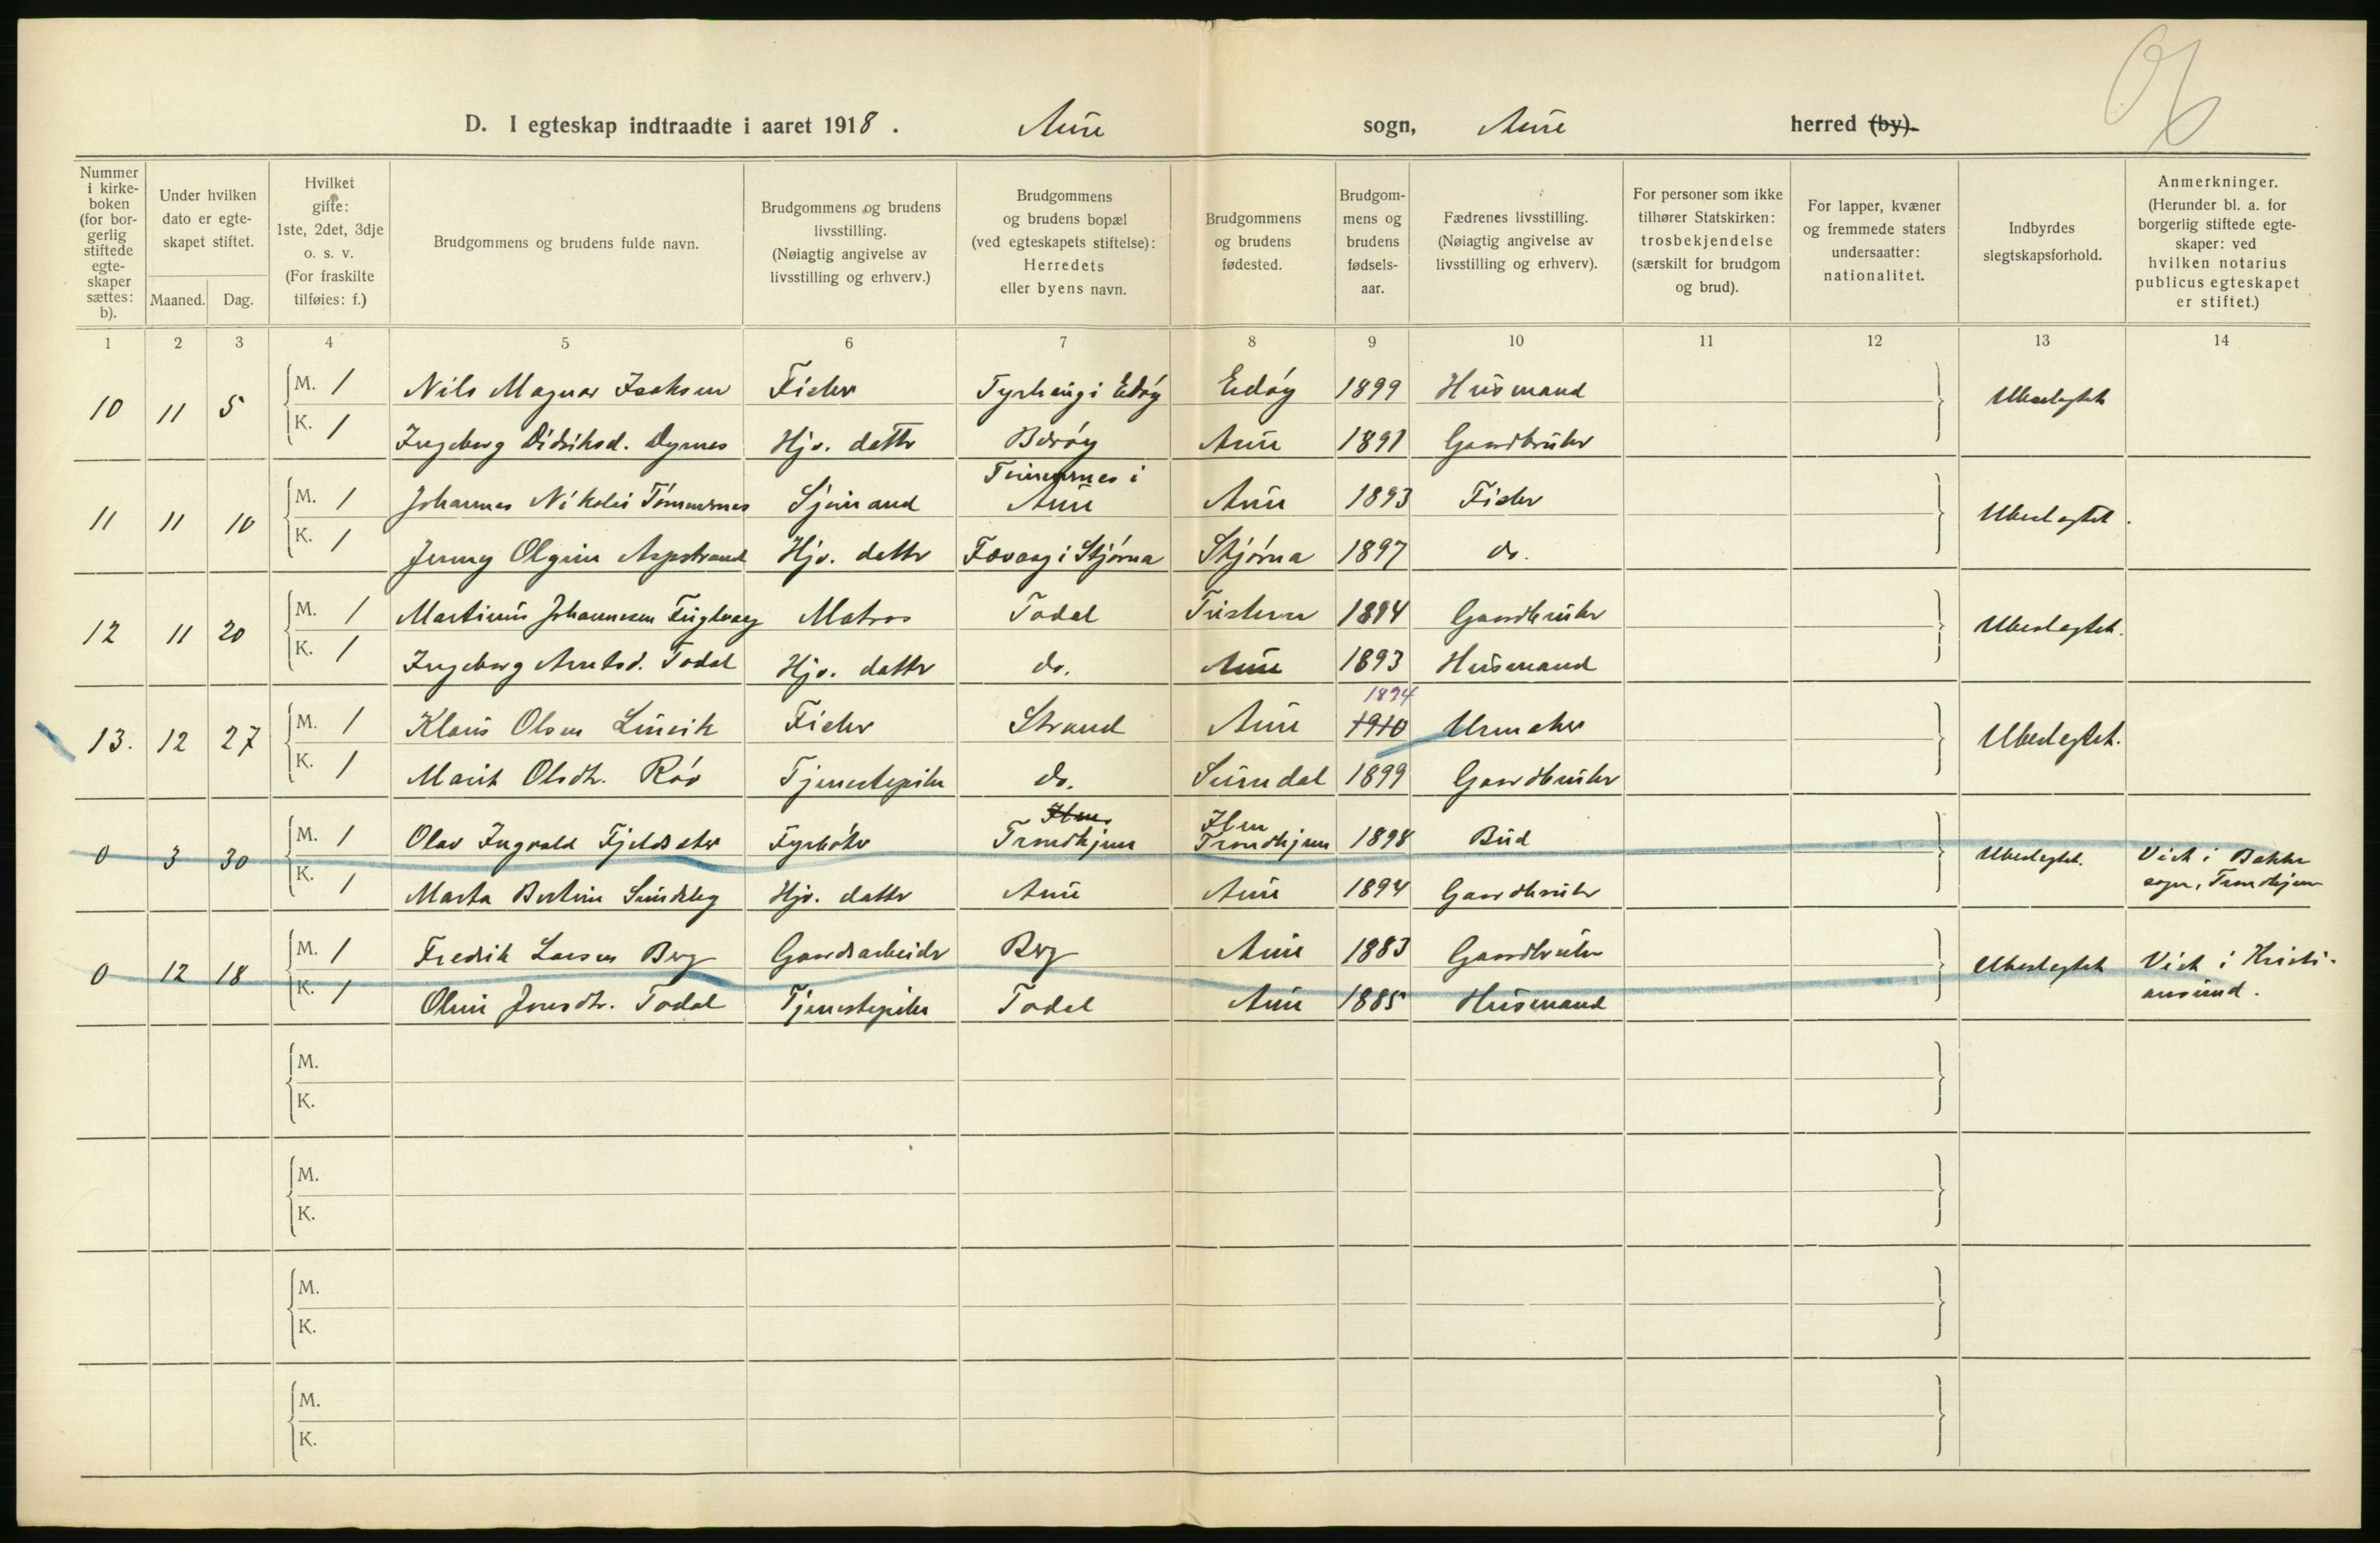 D. I egteskap indtraadte i aaret 1918. Aure sogn, Aure herred (by).
Nummer i kirkeboken (for borgerlig stiftede egteskaper sættes: b).
Under hvilken dato er egteskapet stiftet.
Maaned. Dag.
Hvilket gifte: 1ste, 2det, 3dje o. s. v. (For fraskilte tilføies: f.)
Brudgommens og brudens fulde navn.
Brudgommens og brudens livsstilling. (Nøiagtig angivelse av livsstilling og erhverv.)
Brudgommens og brudens bopæl (ved egteskapets stiftelse): Herredets eller byens navn.
Brudgommens og brudens fødested.
Brudgommens og brudens fødselsaar.
Fædrenes livsstilling. (Nøiagtig angivelse av livsstilling og erhverv).
For personer som ikke tilhører Statskirken: trosbekjendelse (særskilt for brudgom og brud).
For lapper, kvæner og fremmede staters undersaatter: nationalitet.
Indbyrdes slegtskapsforhold.
Anmerkninger. (Herunder bl. a. for borgerlig stiftede egteskaper: ved hvilken notarius publicus egteskapet er stiftet.)
1 2 3 4 5 6 7 8 9 10 11 12 13 14
10 11 5 M. 1 Nils Magnar Isaksen Fisker Tyrhaug i Edøy Edøy 1899 Husmand Ubeslegtet
K. 1 Ingeborg Didriksd. Dyrnes Hjv. datter Aure 1891 Gaardbruker
11 11 10 M. 1 Johannes Nikolai Tømmernes Sjømand Tømmernes i Aure Aure 1893 Fisker Ubeslegtet.
K. 1 Jenny Olgine Aspstrand Hjv. datter Fævaag i Stjørna Stjørna 1897 do.
12 11 20 M. 1 Martinus Johannesen Fuglvaag Matros Todal Tustern 1894 Gaardbruker Ubeslegtet.
K. 1 Ingeborg Arntsd. Todal Hjv. datter do. Aure 1893 Husmand
1894
13. 12 27 M. 1 Klaus Olsen Linvik Fisker Strand Aure 1910 Urmaker Ubeslegtet.
K. 1 Marit Olsdtr. Røv Tjenestepike do. Surndal 1899 Gaardbruker
Ilen Ilen
0 3 30 M. 1 Olav Ingvald Fjeldseter Fyrbøter Trondhjem Trondhjem 1898 Bud Ubeslegtet. Viet i Bakke
K. 1 Marta Bertine Sundsleg Hjv. datter Aure Aure 1894 Gaardbruker sogn, Trondhjem
0 12 18 M. 1 Fredrik Larsen Berg Gaardsarbeider Berg Aure 1883 Gaardbruker Ubeslegtet Viet i Kristi-
K. 1 Oline Jonsdtr. Todal Tjenestepike Todal Aure 1885 Husmand ansund.
M.
K.
M.
K.
M.
K.
M.
K.